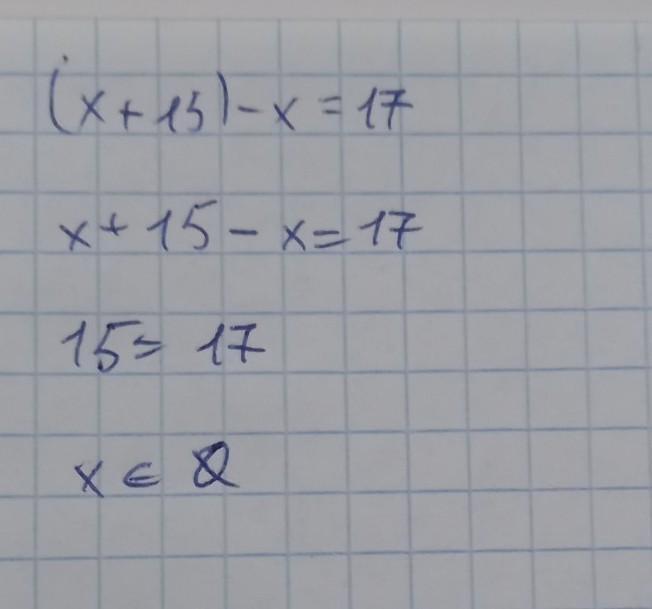 (x + 15) - x = 17
x + 15 - x = 17
15 = 17
x ∈ Ø